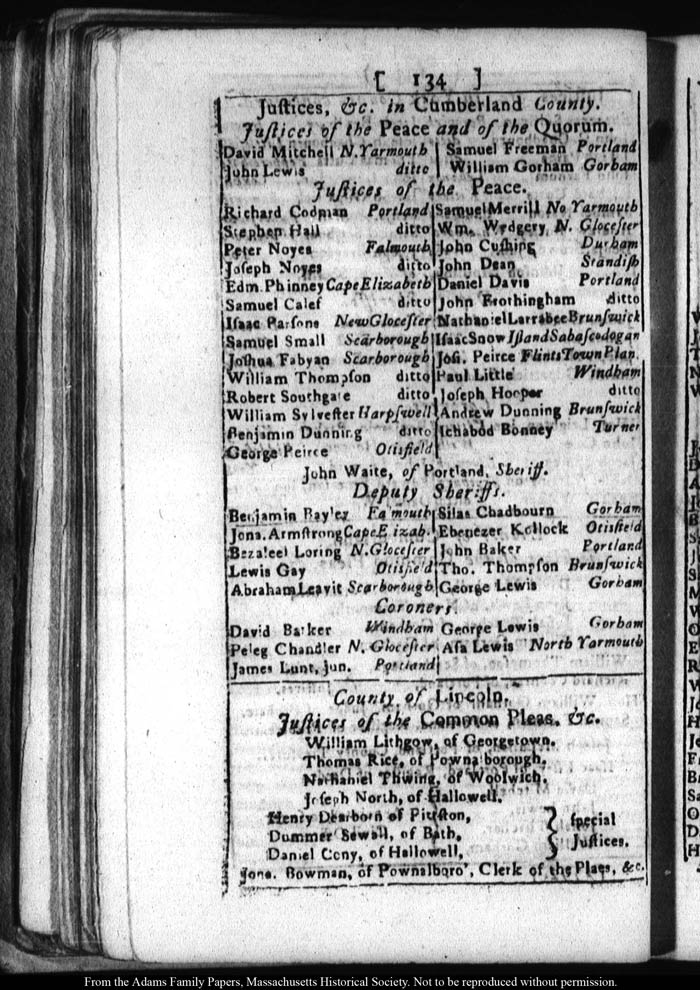 [ 134 ]
Juſtices, &c. in Cumberland County.
Juſtices of the Peace and of the Quorum.
David Mitchell N. Yarmouth | Samuel Freeman Portland
John Lewis ditto | William Gorham Gorham
Juſtices of the Peace.
Richard Codman Portland | Samuel Merrill No Yarmouth
Stephen Hall ditto | Wm. Wydgery N. Gloceſter
Peter Noyes Falmouth | John Cuſhing Durham
Joſeph Noyes ditto | John Dean Standiſh
Edm. Phinney Cape Elizabeth | Daniel Davis Portland
Samuel Calef ditto | John Frothingham ditto
Iſaac Parſons New Gloceſter | Nathaniel Larrabee Brunſwick
Samuel Small Scarborough | Iſaac Snow Iſland Sabaſcodogan
Joſhua Fabyan Scarborough | Joſ. Peirce Flints Town Plan.
William Thompſon ditto | Paul Little Windham
Robert Southgate ditto | Joſeph Hooper ditto
William Sylveſter Harpſwell | Andrew Dunning Brunſwick
Benjamin Dunning ditto | Ichabod Bonney Turner
George Peirce Otisfield
John Waite, of Portland, Sheriff.
Deputy Sheriffs.
Benjamin Bayley Fa mouth | Silas Chadbourn Gorham
Jona. Armſtrong Cape E izab. | Ebenezer Kollock Otisfield
Bezaleel Loring N. Gloceſter | John Baker Portland
Lewis Gay Otisfie'd | Tho. Thompſon Brunſwick
Abraham Leavit Scarborough | George Lewis Gorham
Coroners.
David Barker Windham | George Lewis Gorham
Peleg Chandler N. Gloceſter | Aſa Lewis North Yarmouth
James Lunt, jun. Portland
County of Lincoln.
Juſtices of the Common Pleas, &c.
William Lithgow, of Georgetown.
Thomas Rice, of Powna'borough.
Nathaniel Thwing, of Woolwich.
Joſeph North, of Hallowell.
Henry Dearborn of Pittſton,
Dummer Sewall, of Bath, } ſpecial
Daniel Cony, of Hallowell, } Juſtices.
Jona. Bowman, of Pownalboro', Clerk of the Pleas, &c.
From the Adams Family Papers, Massachusetts Historical Society. Not to be reproduced without permission.